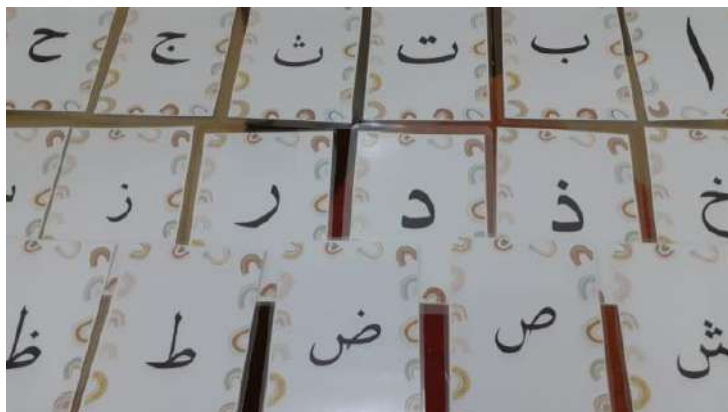 ا ب ت ث ج ح
خ ذ د ر ز
ش ص ض ط ظ